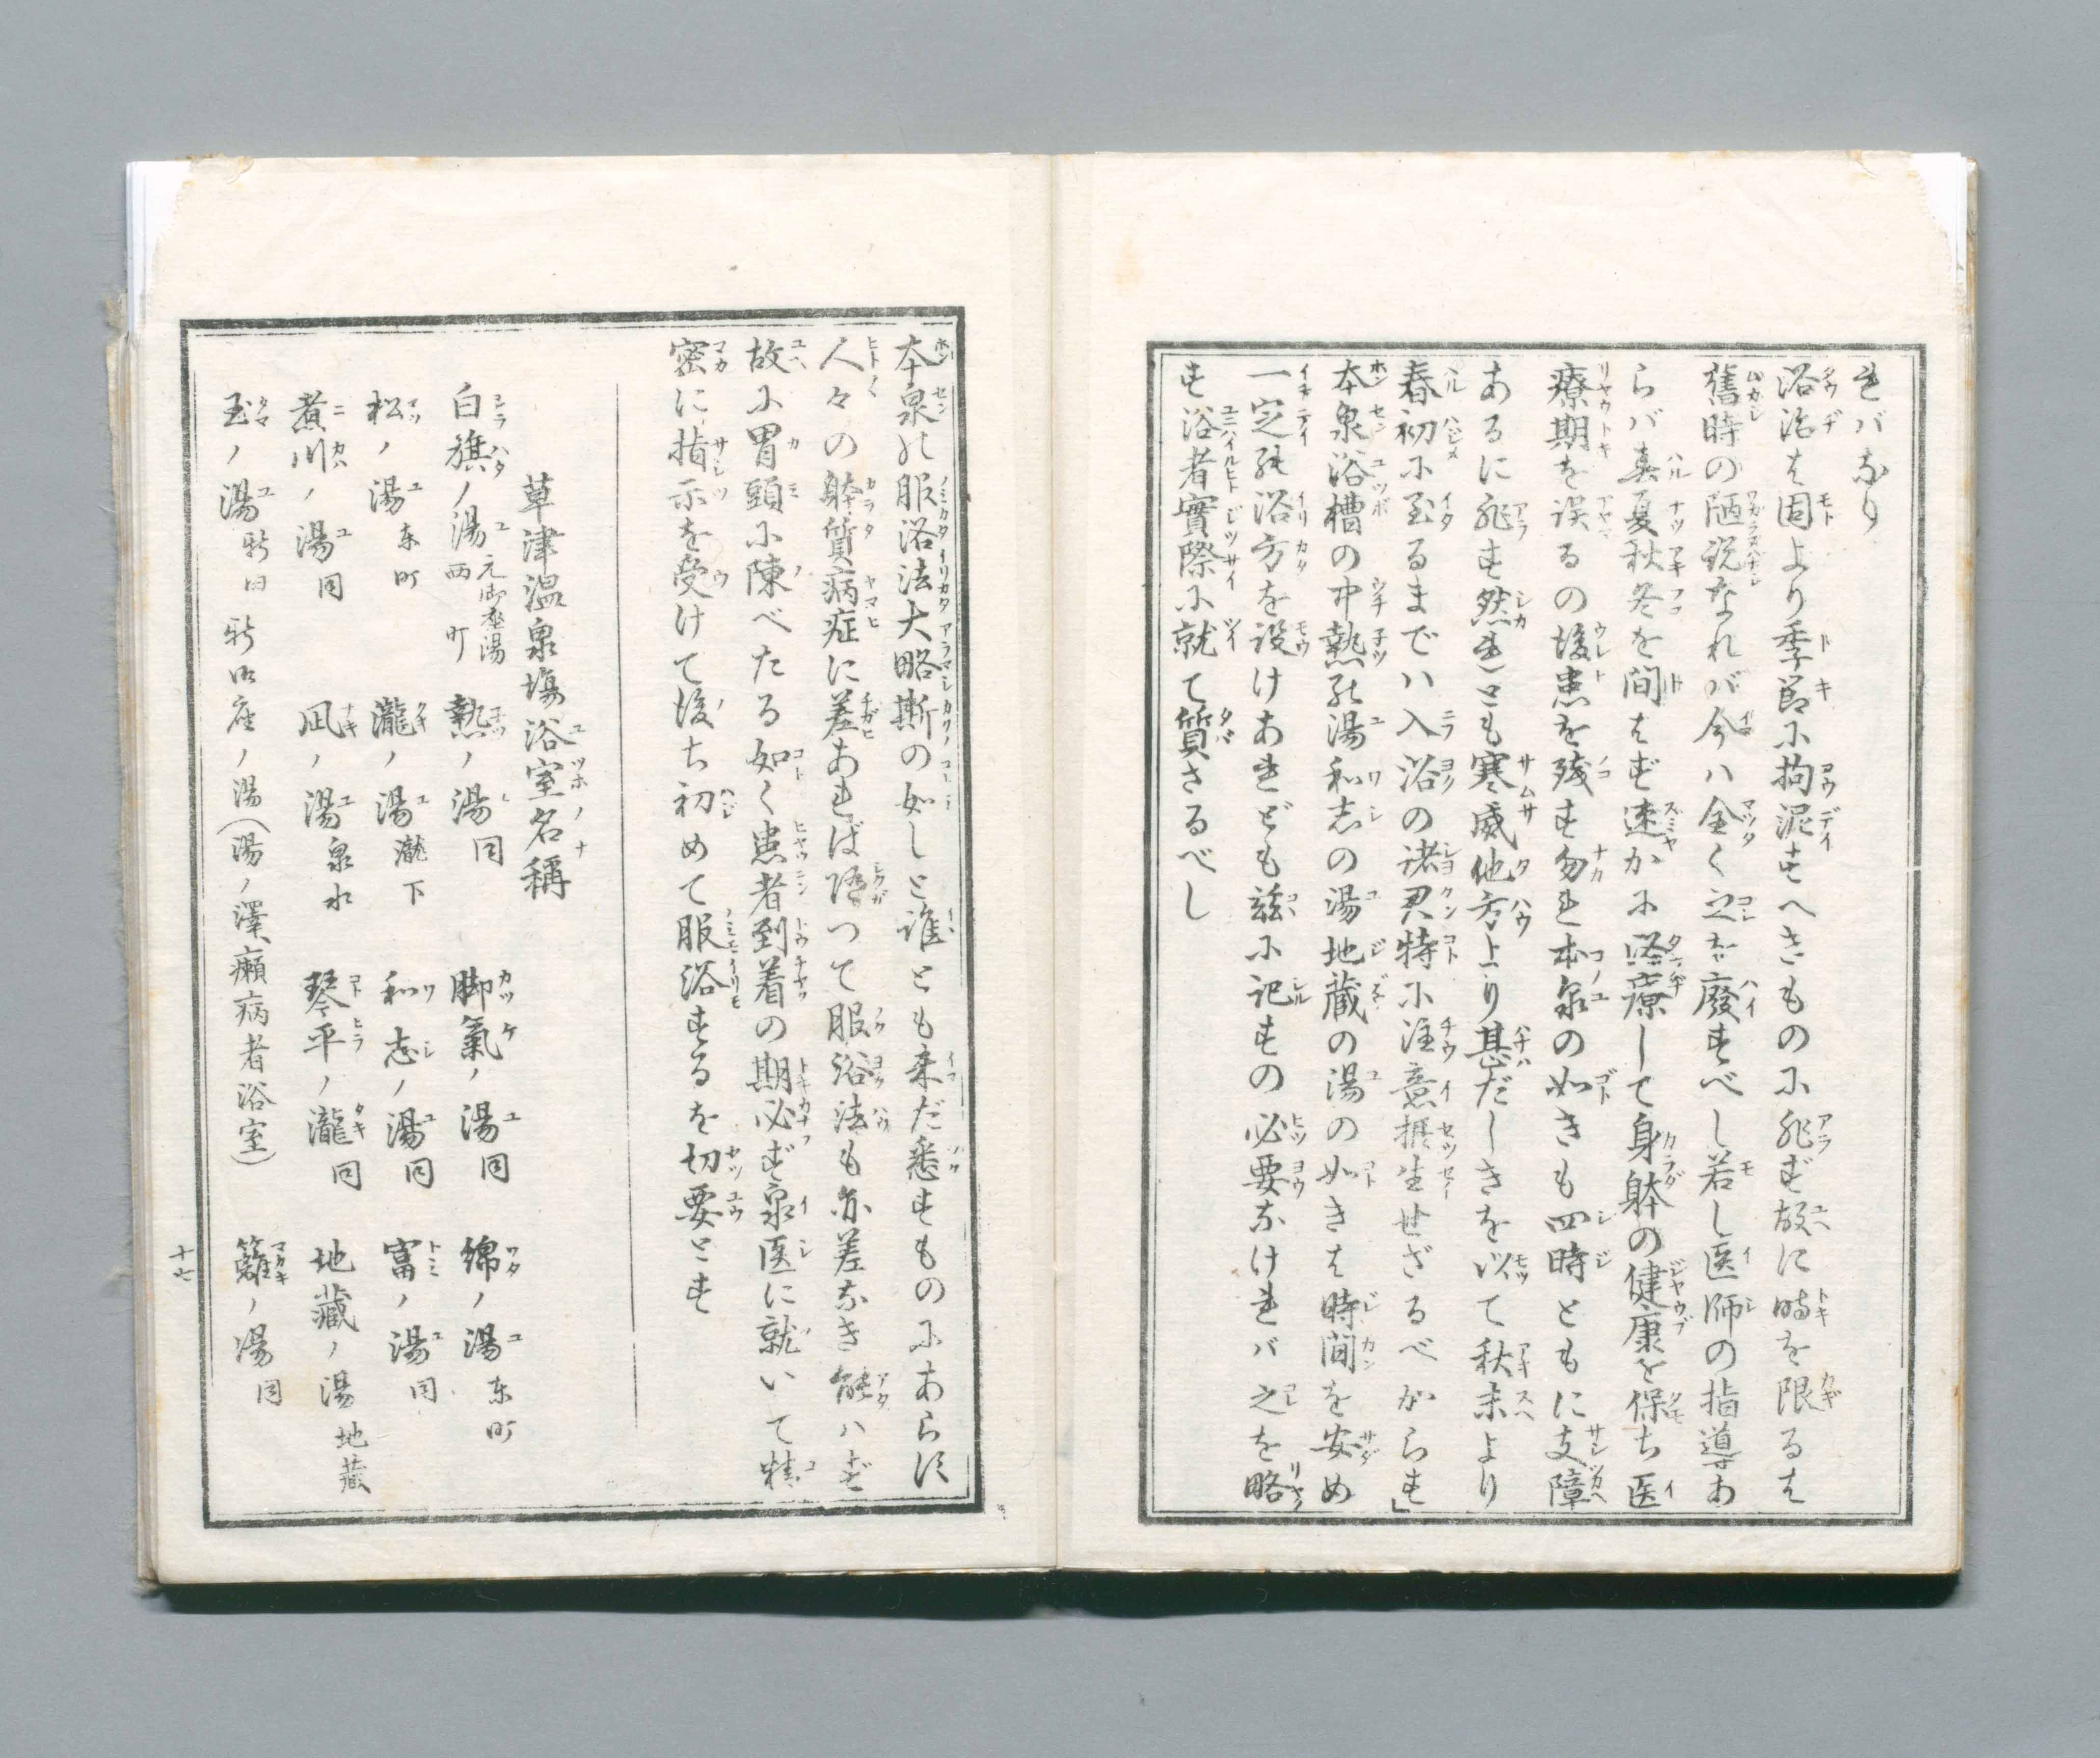 れバなり
浴治は固より季節に拘泥すへきものに非ず故に時を限るは
舊時の陋説なれバ今ハ全く之を廢すべし若し医師の指導あ
らバ春夏秋冬を間はず速かに浴療して身躰の健康を保ち医
療期を誤るの後患を殘す勿れ本泉の如きも四時ともに支障
あるに非す然れとも寒威他方より甚だしきを以て秋末より
春初に至るまでハ入浴の諸君特に注意摂生せざるべからす」
本泉浴槽の中熱の湯和志の湯地蔵の湯の如きは時間を安め
一定の浴方を設けあれども茲に記すの必要なけれバ之を略
す浴者實際に就て質さるべし
本泉の服浴法大略斯の如しと雖とも未だ悉すものにあらす
人々の躰質病症に差あれば随つて服浴法も亦差なき能ハず
故に胃頭に陳べたる如く患者到着の期必ず泉医に就いて精
密に指示を受けて後ち初めて服浴するを切要とす
草津温泉塲浴室名稱
白旗ノ湯 元御座湯 西町 熱ノ湯 同 脚氣ノ湯 同 綿ノ湯 東町
松ノ湯 東町 瀧ノ湯 瀧下 和志ノ湯 同 富ノ湯 同
煮川ノ湯 同 凪ノ湯 泉水 琴平ノ瀧 同 地藏ノ湯 地藏
玉ノ湯 新田 新御座ノ湯(湯ノ澤癩病者浴室) 籬ノ湯 同
十七